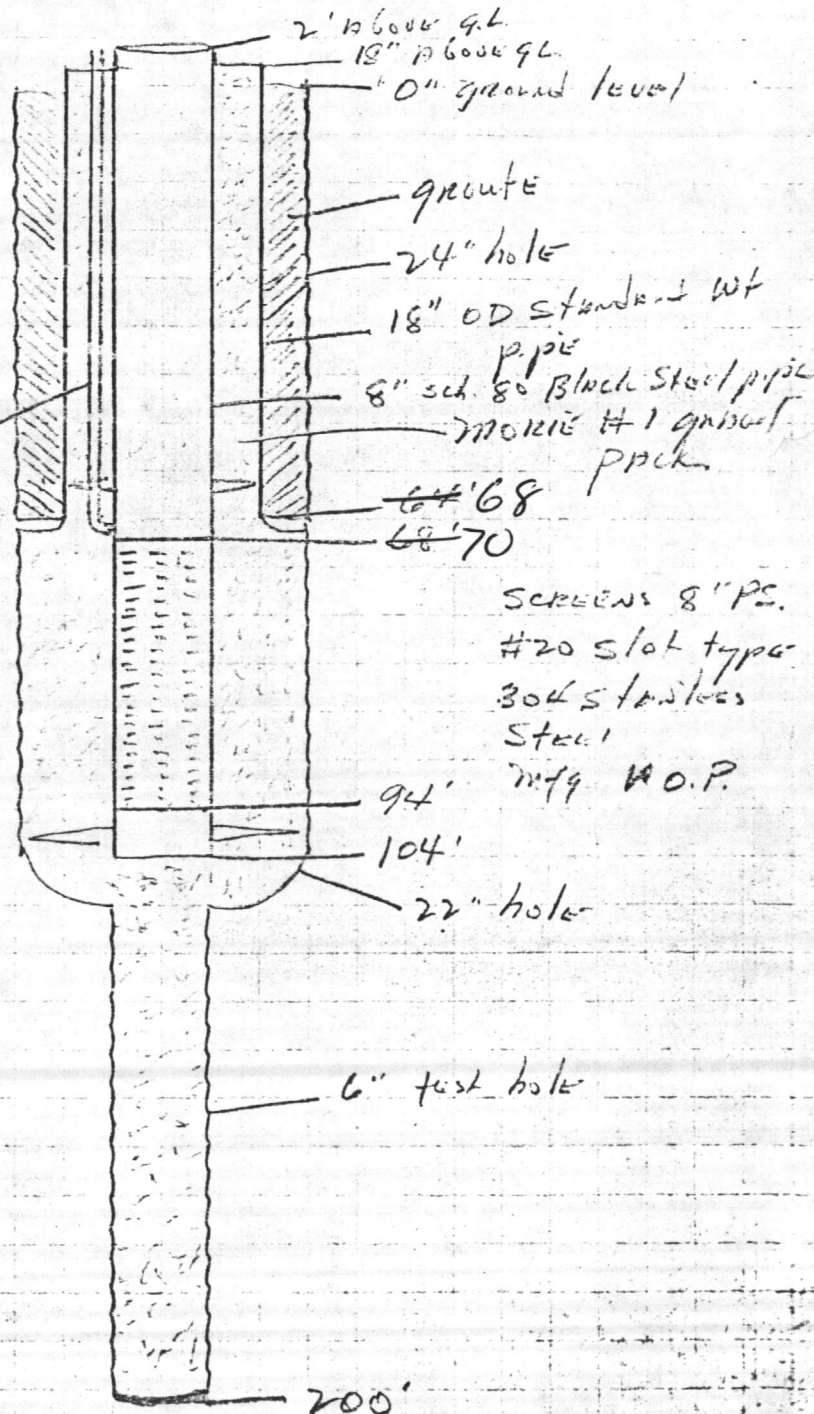 2' Above G.L.
18" Above GL.
0" ground level
groute
24" hole
18" OD Standard Wt
pipe
8" sch. 80 Black Steel pipe
MORIE #1 gravel
pack
64' 68
68' 70
SCREENS 8" PS.
#20 slot type
304 Stainless
Steel
mfg O.P.
94
104'
22" hole
6" test hole
200'